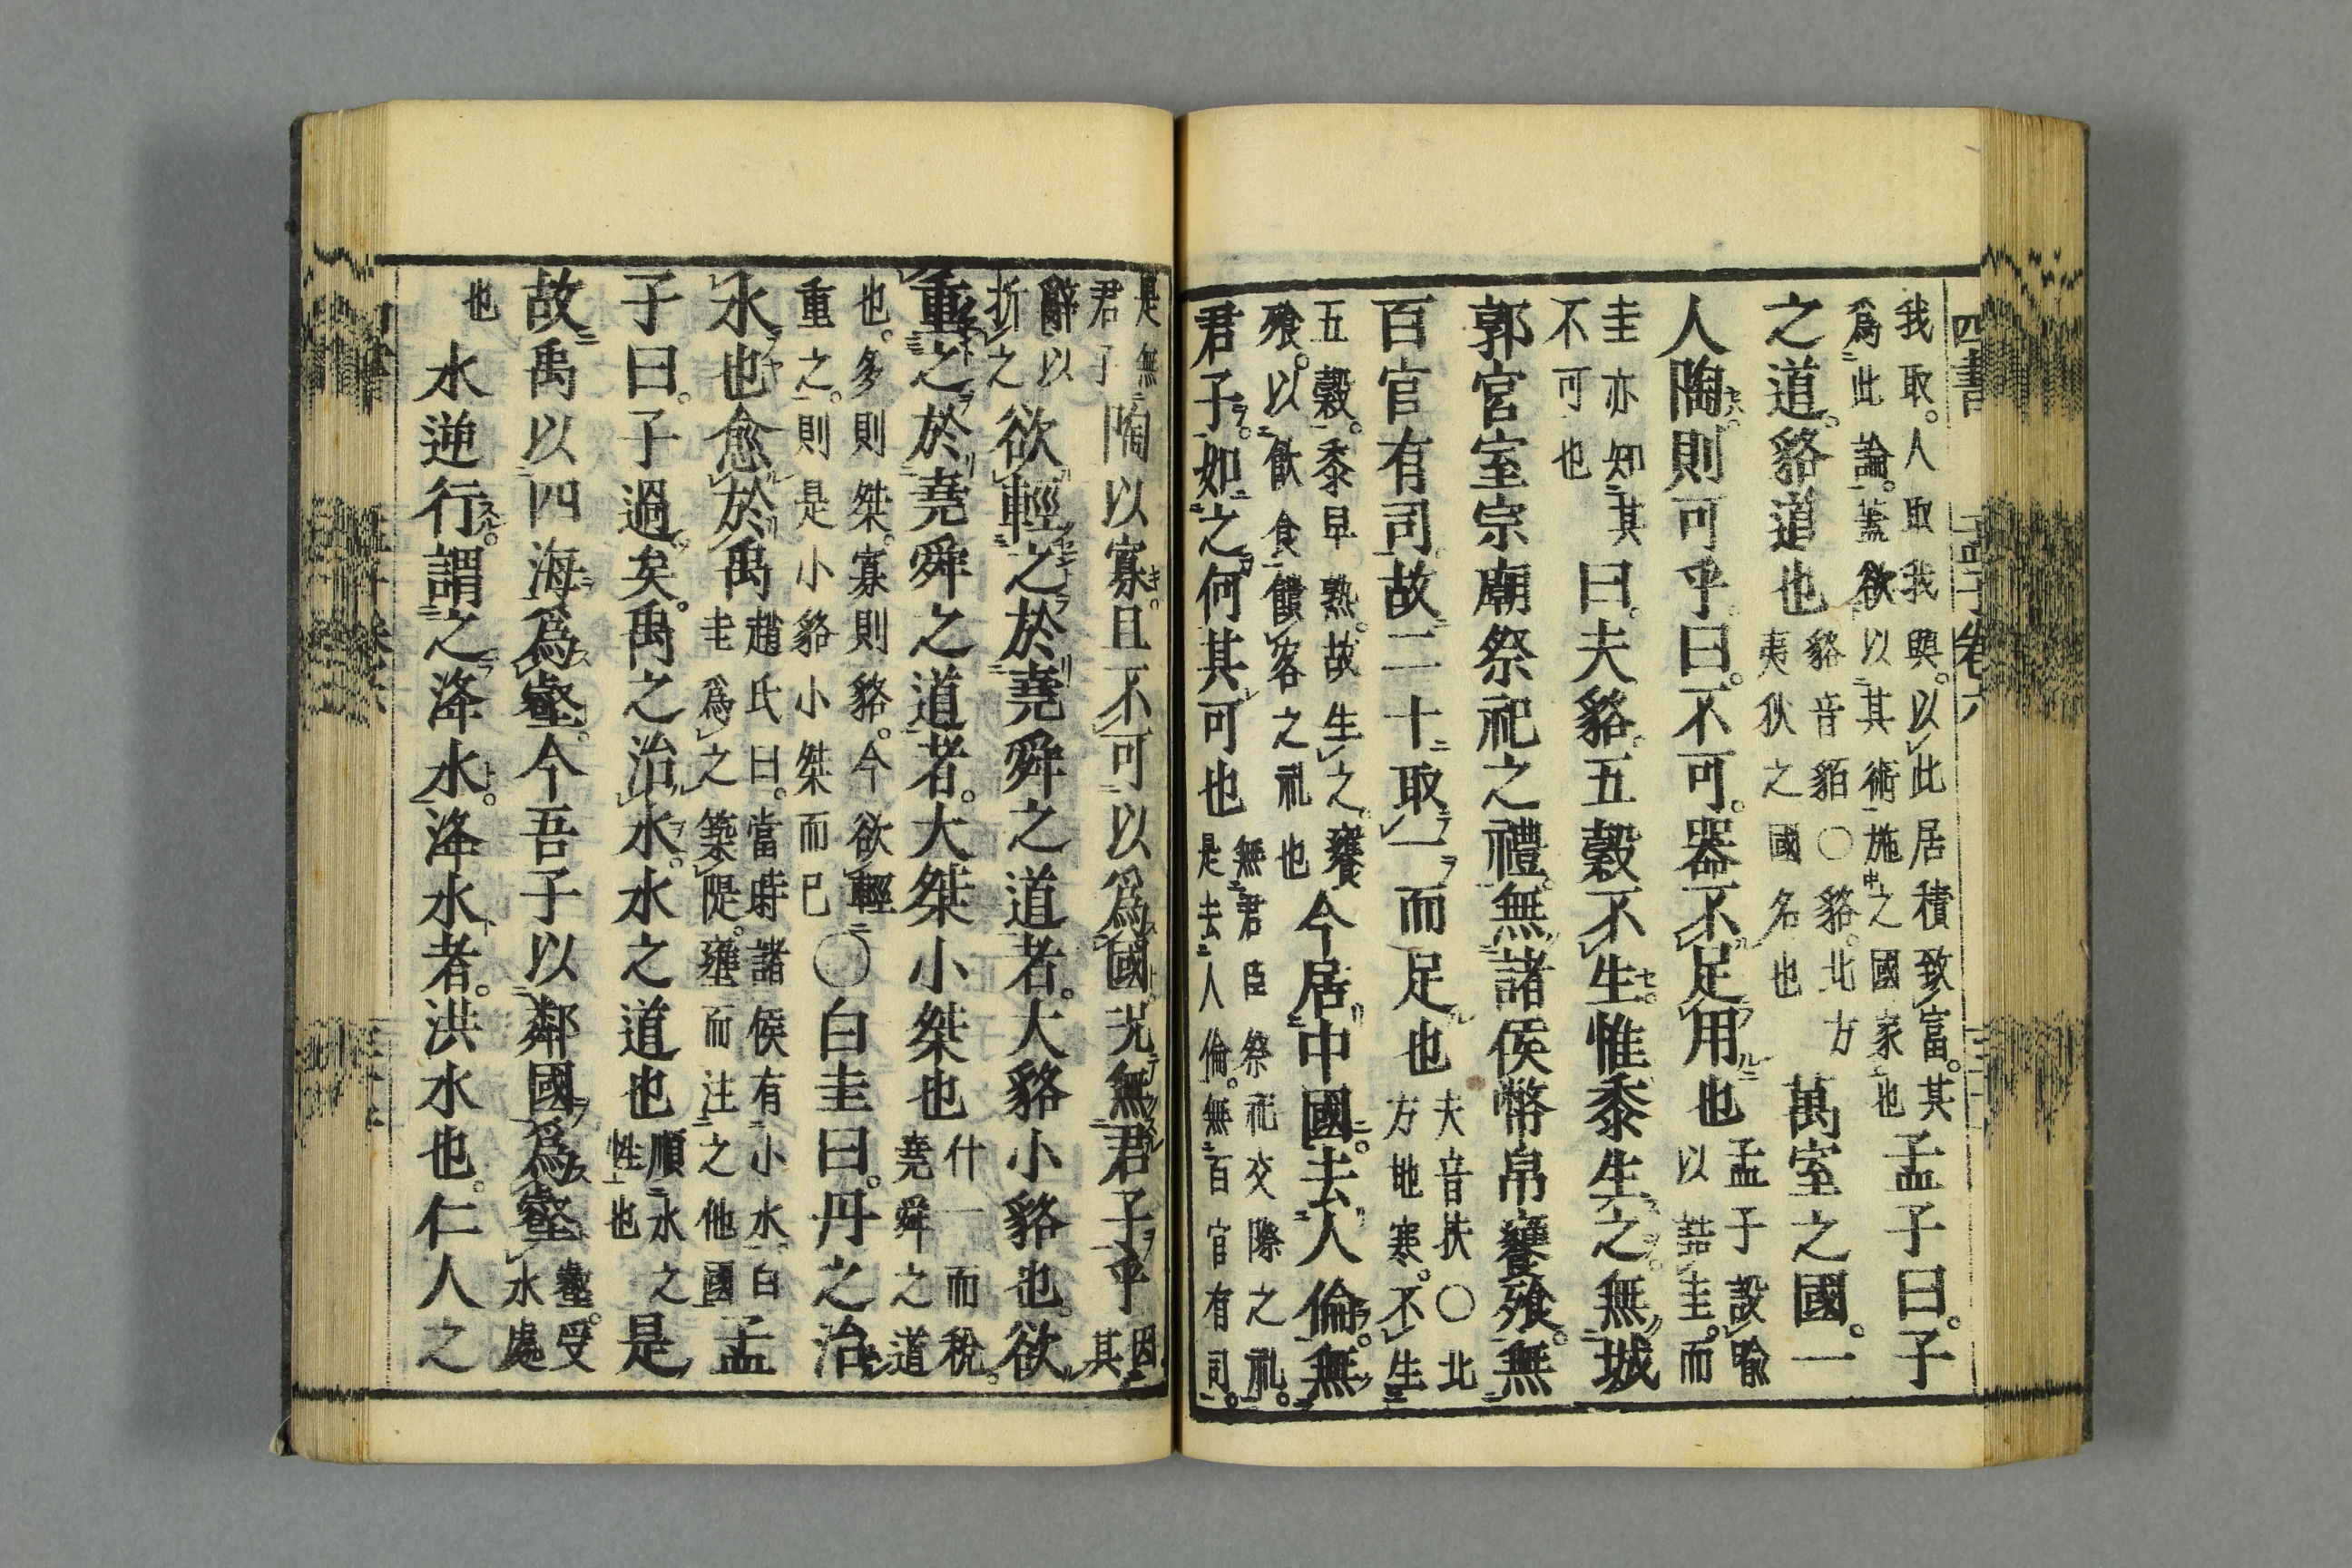 四書 孟子卷六
我取。人取我與。以此居積致富。其
爲此論。蓋欲以其術施之國家也
孟子曰。子
之道。貉道也
貉音貊○貉。北方
夷狄之國名也
萬室之國。一
人陶。則可乎。曰。不可。器不足用也
孟子設喻
以詰圭。而
圭亦知其
不可也
曰。夫貉。五穀不生。惟黍生之。無城
郭宮室宗廟祭祀之禮。無諸侯幣帛饔飧。無
百官有司。故二十取一而足也
夫音扶○北
方地寒。不生
五穀。黍早熟。故生之。饔
飧。以飲食饋客之礼也
今居中國。去人倫。無
君子。如之何其可也
無君臣祭祀交際之礼。
是去人倫。無百官有司。
是無
君子
陶以寡。且不可以爲國。況無君子乎
因
其
辭以
折之
欲輕之於堯舜之道者。大貉小貉也。欲
重之於堯舜之道者。大桀小桀也
什一而稅。
堯舜之道
也。多則桀。寡則貉。今欲輕
重之。則是小貉小桀而已
○白圭曰。丹之治
水也愈於禹
趙氏曰。當時諸侯有小水。白
圭爲之築隄。壅而注之他國
孟
子曰。子過矣。禹之治水。水之道也
順水之
性也
是
故禹以四海爲壑。今吾子以鄰國爲壑
壑。受
水處
也
水逆行。謂之洚水。洚水者。洪水也。仁人之